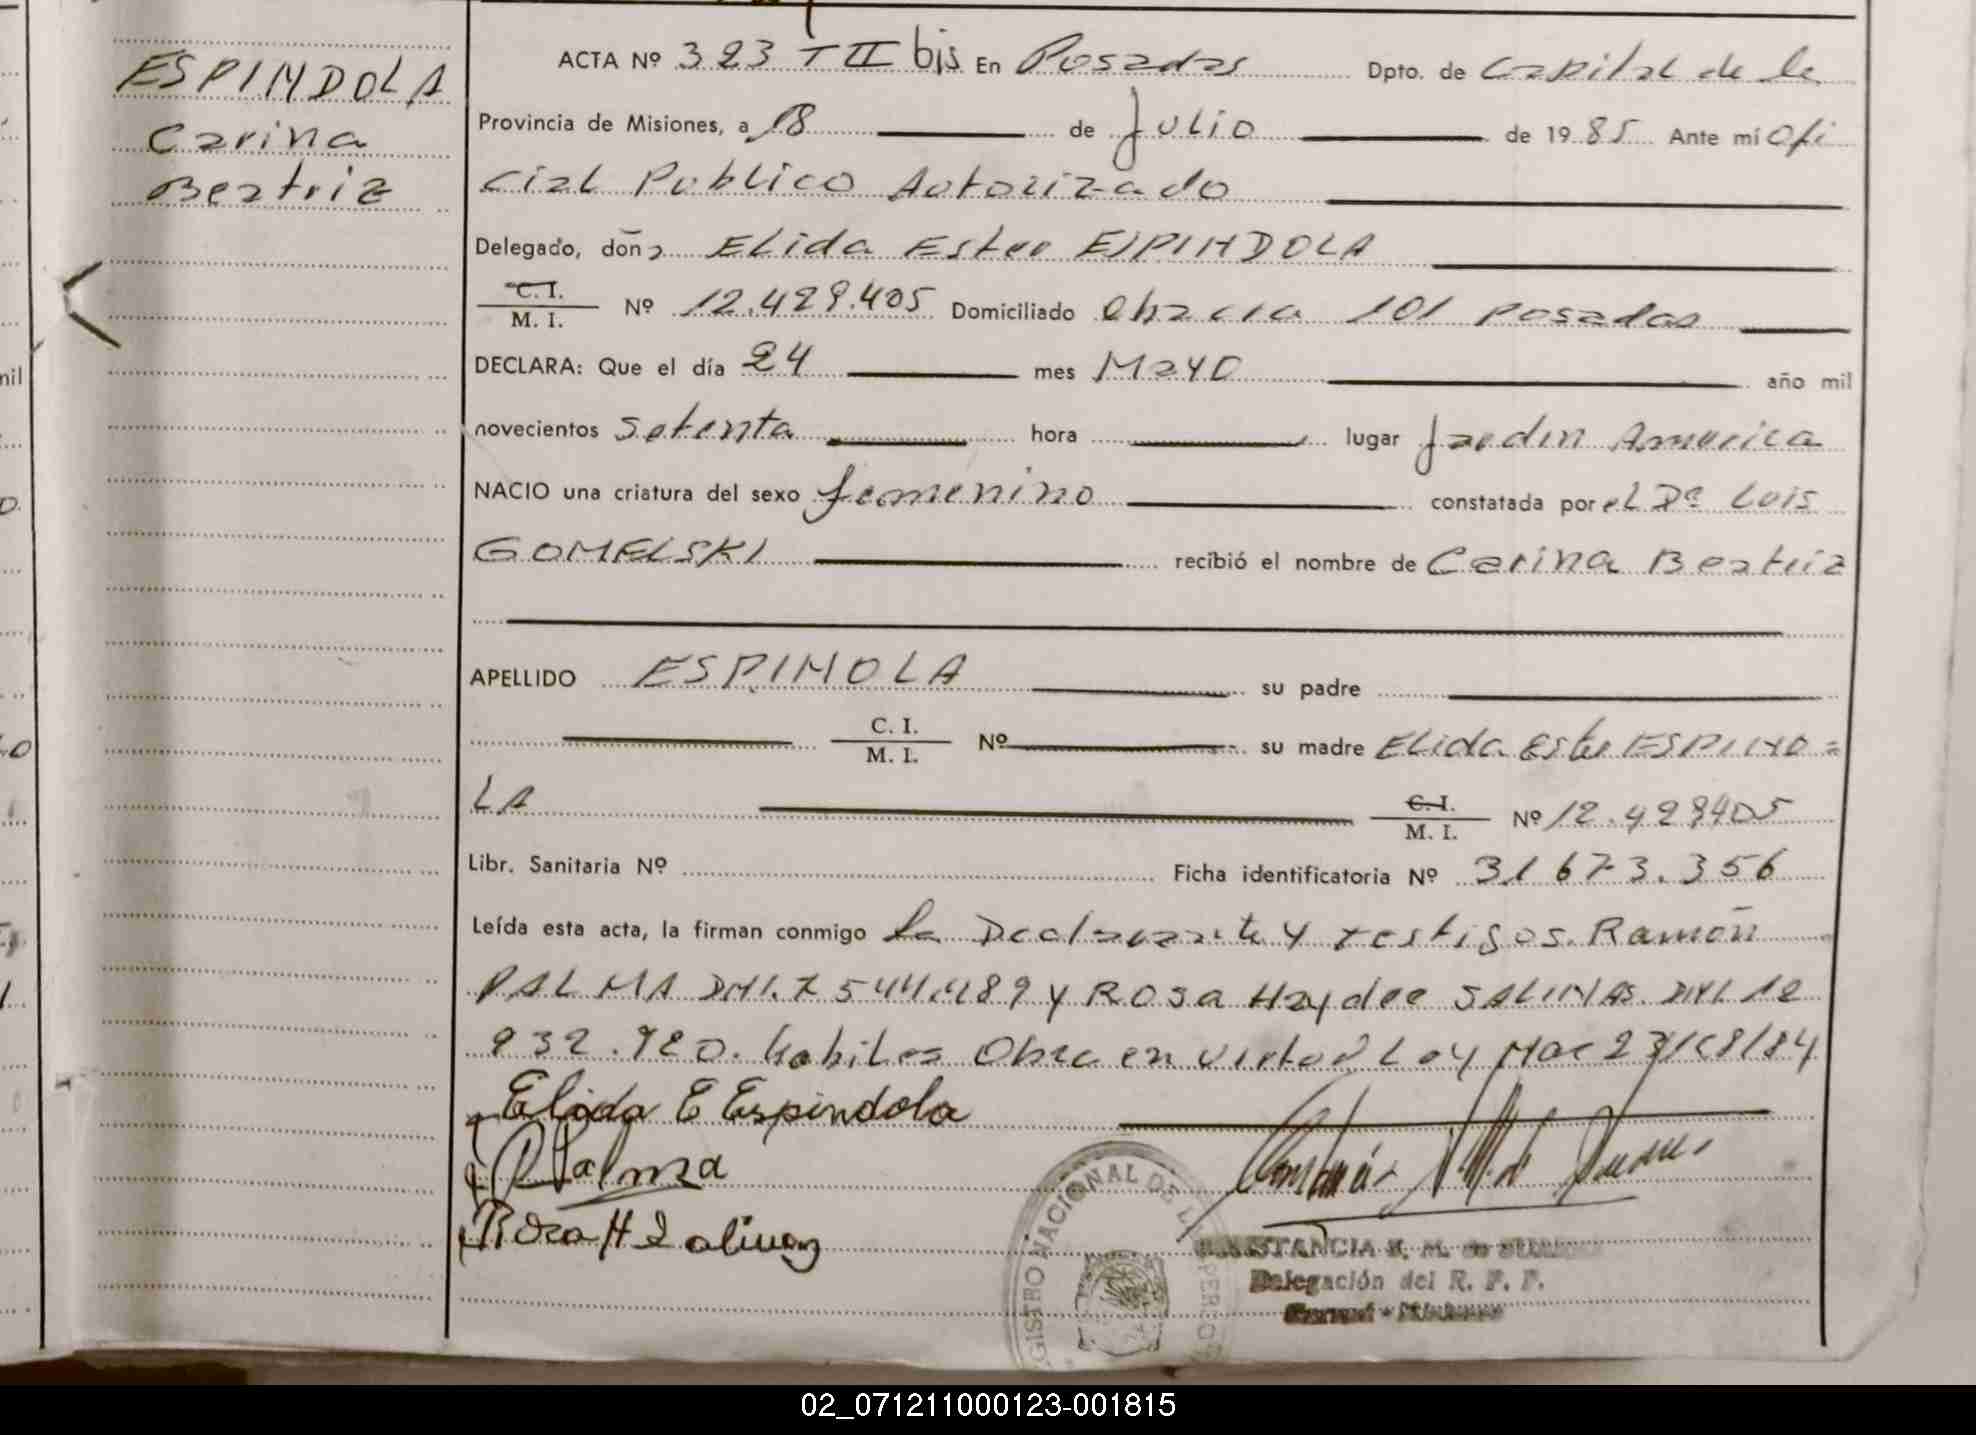 ESPINDOLA
Carina
Beatriz
ACTA Nº 323 T II bis En Posadas Dpto. de Capital de la
Provincia de Misiones, a 18 de Julio de 1985 Ante mí Ofi
cial Publico Autorizado
Delegado, don Elida Ester ESPINDOLA
C. I.
M. I. Nº 12.429.405 Domiciliado 101 Posadas
DECLARA: Que el día 24 mes Mayo año mil
novecientos setenta hora lugar Jardin America
NACIO una criatura del sexo femenino constatada por el Dº Luis
GOMELSKI recibió el nombre de Carina Beatriz
APELLIDO ESPINOLA su padre
C. I.
M. I. Nº su madre Elida Ester ESPINO=
LA C. I.
M. I. Nº 12.429405
Libr. Sanitaria Nº Ficha identificatoria Nº 31673.356
Leída esta acta, la firman conmigo la Declarante y testigos. Ramón
PALMA DNI. 7 544.489 y Rosa Haydee SALINAS. DNI. 12
932.920. habiles Obra en virtud Ley
Elida E Espindola
R Palma
Rosa H Salinas
REGISTRO NACIONAL DE
Delegación del R. P. P.
mil
02_071211000123-001815